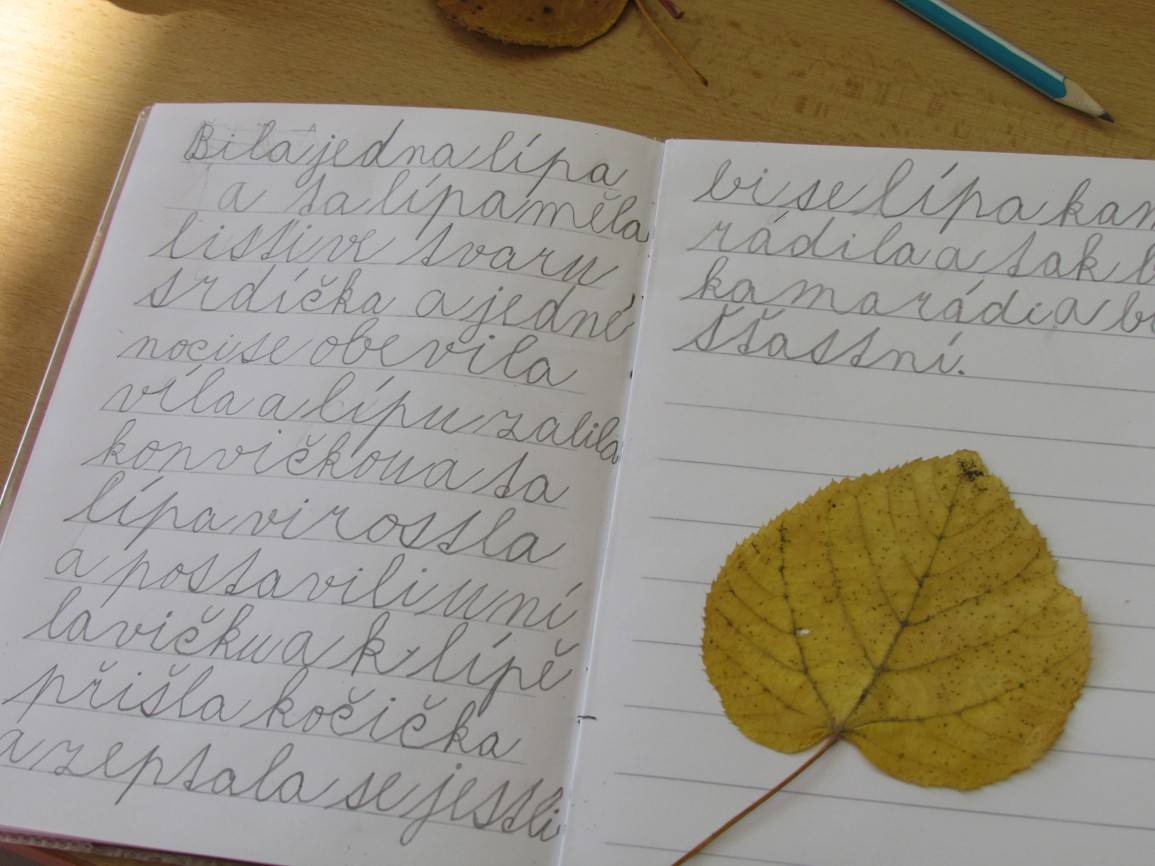 Bila jedna lípa
a ta lípa měla
listive tvaru
srdíčka a jedné
noci se obevila
víla a lípu zalila
konvičkou a ta
lípa virostla
a postavili u ní
lavičku a k lípě
přišla kočička
a zeptala se jestli
bi se lípa kam
rádila a tak b
kamarádi a bi
šťastní.